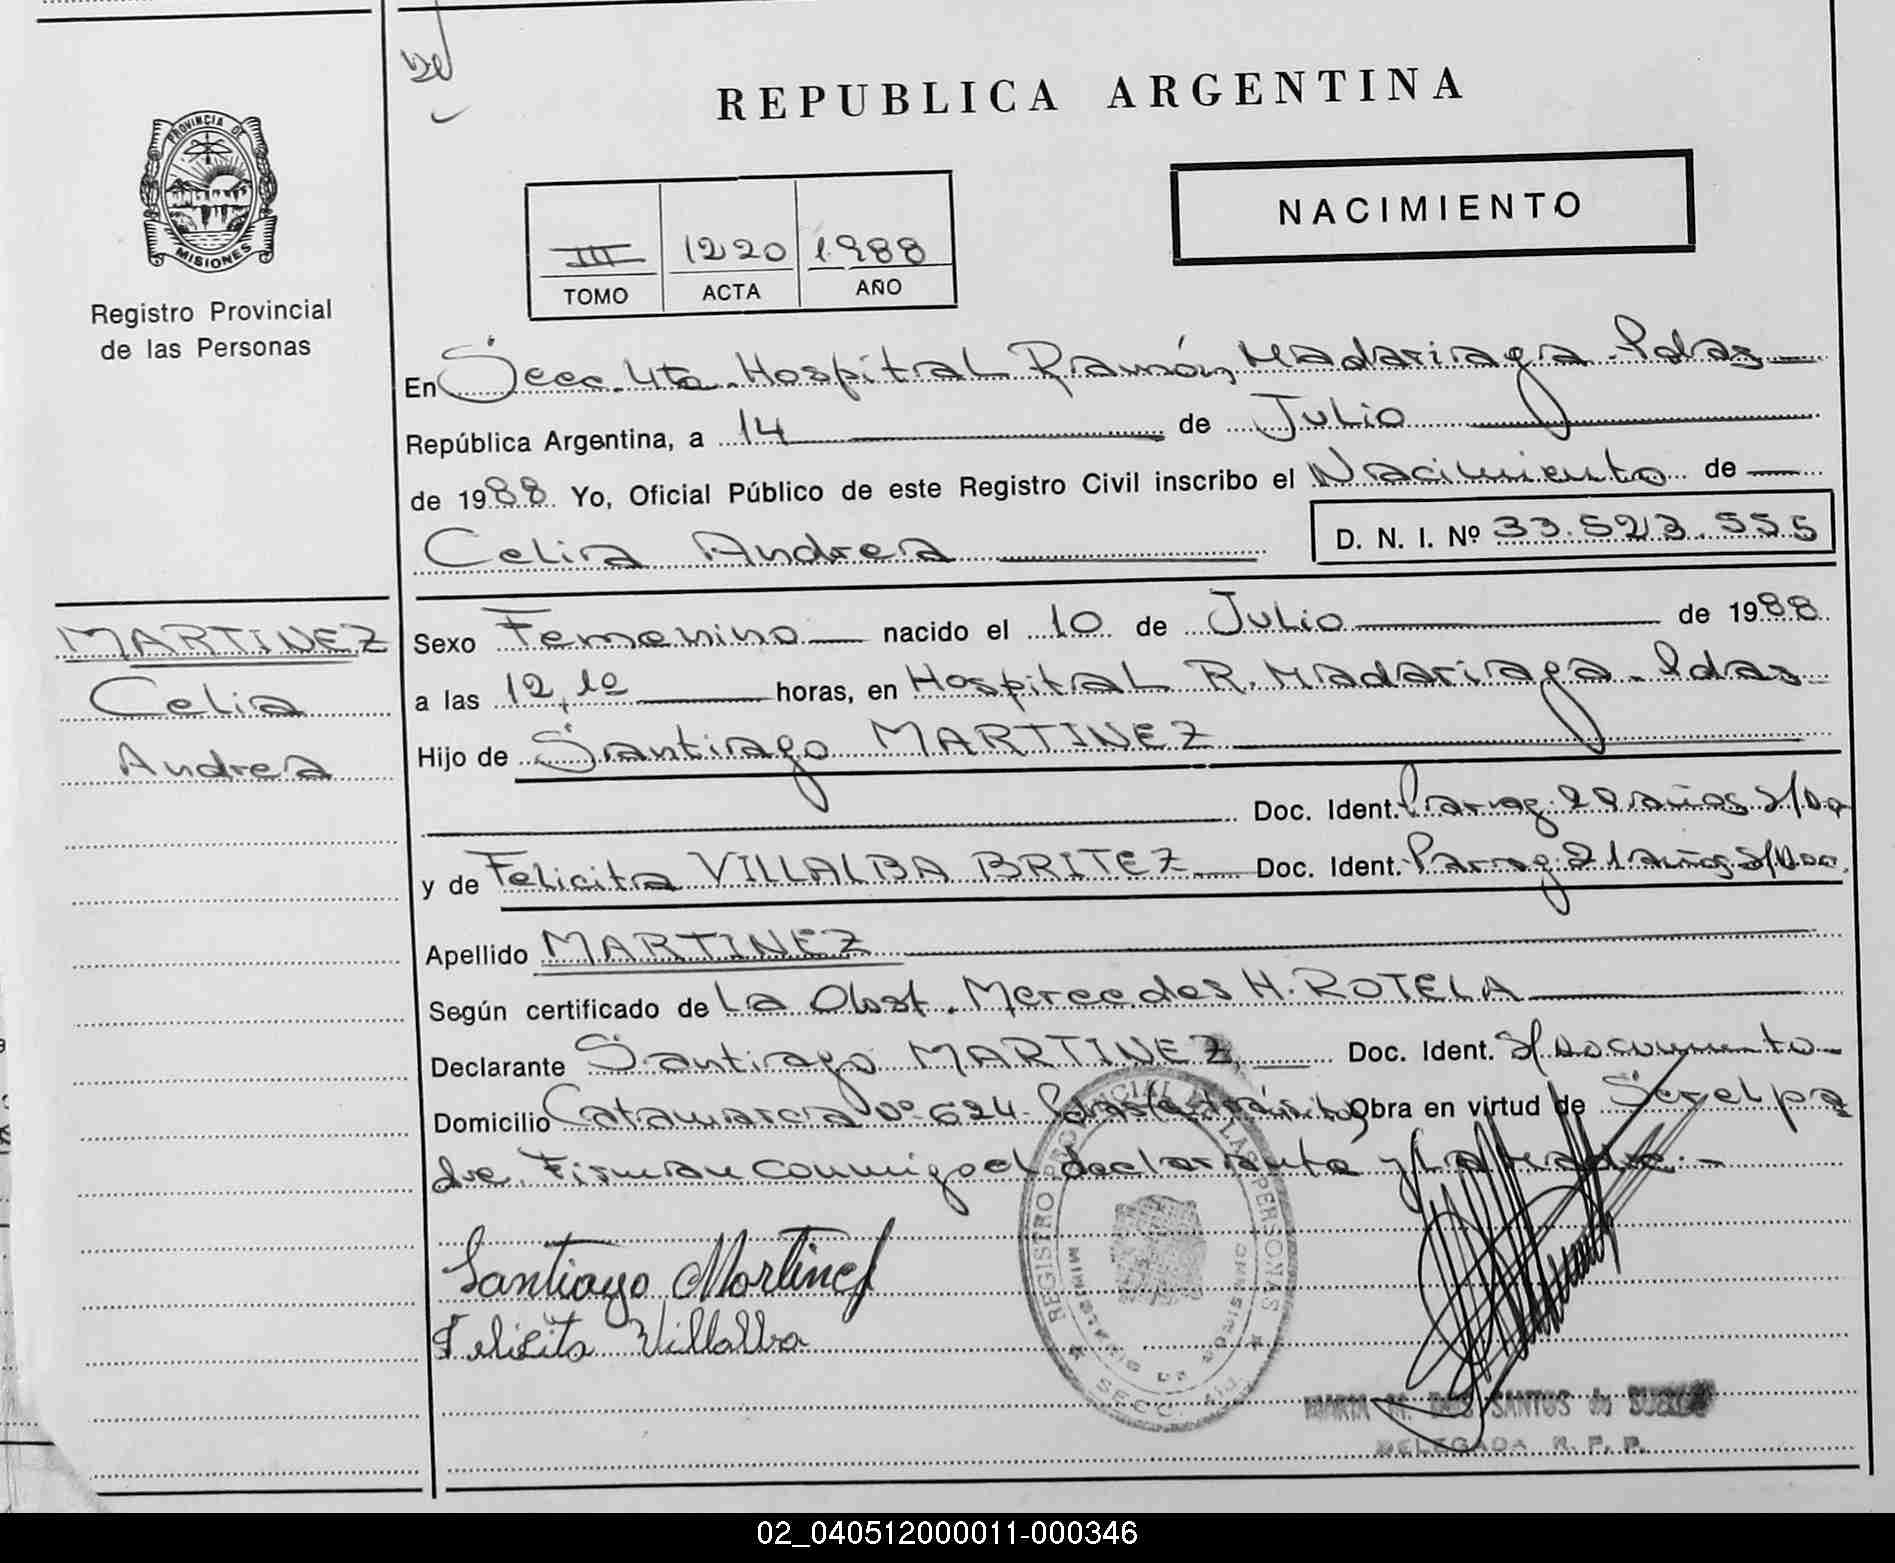 REPUBLICA ARGENTINA
PROVINCIA DE
MISIONES
Registro Provincial
de las Personas
NACIMIENTO
III 1220 1988
TOMO ACTA AÑO
En Secc. 4ta. Hospital Ramón Madariaga - Pdas
República Argentina, a 14 de Julio
de 1988 Yo, Oficial Público de este Registro Civil inscribo el Nacimiento de
Celia Andrea D. N. I. Nº 33.523.555
MARTINEZ
Celia
Andrea
Sexo Femenino nacido el 10 de Julio de 1988
a las 12,10 horas, en Hospital R. Madariaga - Pdas
Hijo de Santiago MARTINEZ
Doc. Ident. Parag. años S/Do
y de Felicita VILLALBA BRITEZ Doc. Ident. Parag. 21 años S/Doc.
Apellido MARTINEZ
Según certificado de La Obst. Mercedes H. ROTELA
Declarante Santiago MARTINEZ, Doc. Ident. S/ Documento
Domicilio Catamarca Nº 624 - Pdas Obra en virtud de Ser el pa
dre. Firman conmigo el declarante y La Madre. -
Santiago Martinez
Felicita Villalba
REGISTRO PROVINCIAL DE LAS PERSONAS
MINISTERIO DE GOBIERNO
SECC. 4ta
MARIA M. DOS SANTOS de
DELEGADA R. P. P.
02_040512000011-000346